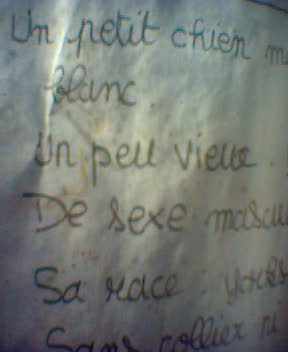 Un petit chien
blanc.
Un peu vieux.
De sexe
Sa race :
Sans collier ni